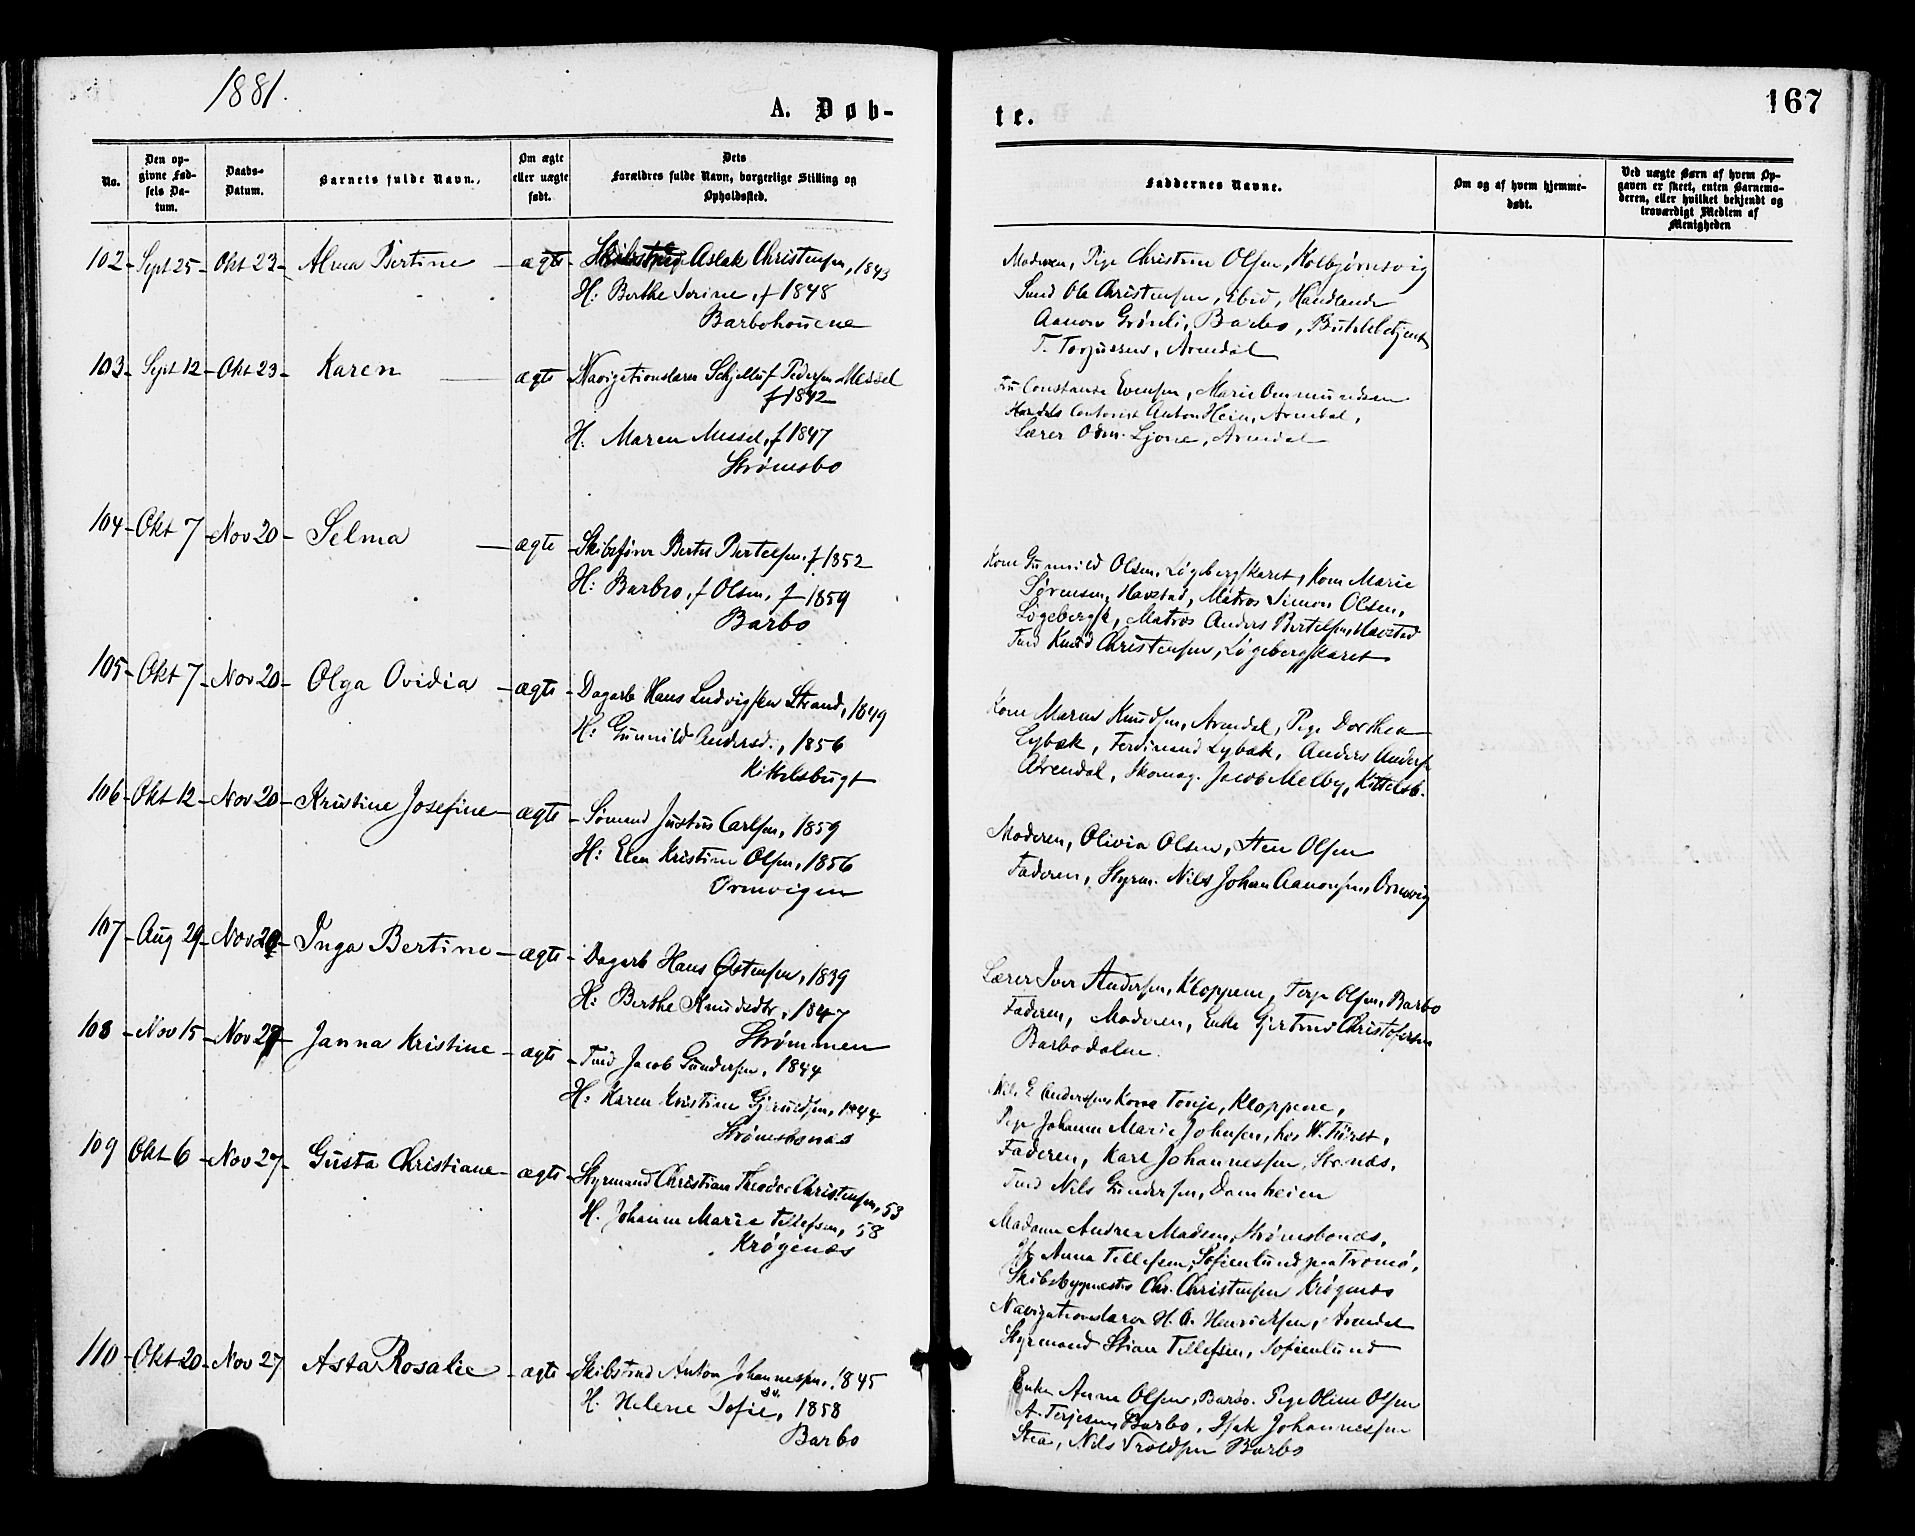 1881.
A. Døb-
No.
Den op-
givne Fød-
sels Da-
tum.
Daabs-
Datum.
Barnets fulde Navn.
Om ægte
eller uægte
født.
Dets
Forældres fulde Navn, borgerlige Stilling og
Opholdssted.
102 - Sept 25 - Okt 23 - Alma Bertine - ægte - Aslak Christensen, 1843
H: Berthe Serine, f 1848
Barbohouene
103 - Sept 12 - Okt 23 - Karen - ægte - Navigationslærer Schjelluf Pedersen Messel
f 1842
H. Maren Messel, f 1847
Strømsbo
104 - Okt 7 - Nov 20 - Selma - ægte - Skibsfører Bertel Bertelsen. f 1852
H: Barbro, f Olsen, f 1859
Barbo
105 - Okt 7 - Nov 20 - Olga Ovidia - ægte - Dagarb Hans Ludvigsen Strand, 1849
H: Gunnild Andersd., 1856
Kitelsbugt
106 - Okt 12 - Nov 20 - Kristine Josefine - ægte - Sømand Justus Carlsen, 1859
H: Elen Kristine Olsen, 1856
Ormvigen
107 - Aug 29 - Nov 20 - Inga Bertine - ægte - Dagarb Hans Østensen, 1839
H: Berthe Knudsdtr, 1847
Strømmen
108 - Nov 15 - Nov 27 - Janna Kristine - ægte - Tmd Jacob Gundersen, 1844
H: Karen Kristine 1844
Strømsbonæs
109 Okt 6 - Nov 27 - Gusta Christiane - ægte - Styrmand Christian Theodor Christensen, 53
H. Johanne Marie Tellefsen, 58
Krøgenæs
110 - Okt 20 - Nov 27 Asta Rosalie - ægte - Skibstmd Anton Johannessen, 1845
H. Helene Sofie, 1858
Barbo
te.
167
Faddernes Navne.
Om og af hvem hjemme-
døbt.
Ved uægte Børn af hvem Op-
gaven er skeet, enten Barnemo-
deren, eller hvilket bekjendt og
troværdigt Medlem af
Menigheden
Moderen, Pige Christine Olsen, Kolbjørnsvig
Ole Christensen, ibid, Handlende
Aanon Grønli, Barbo,
T. Torjussen, Arendal
Constanse Evensen, Marie Ommundsen
Handels Contorist Anton Hein, Arendal,
Lærer Ljone, Arendal
Kone Gunnild Olsen, Løgebergskaret, Kone Marie
Sørensen, Havstad, Matros Simon Olsen,
Løgebergsk, Matros Anders Bertelsen, Havstad
Tmd Knud Christensen, Løgebergskaret
Kone Maren Knudsen, Arendal, Pige Dorthea
Lybæk, Ferdinand Lybæk, Anders Anders
Arendal, Skomag. Jacob Melby, Kittelsb.
Moderen, Olivia Olsen, Olsen
Faderen, Styrm. Nils Johan Aanonsen, Ormvig
Lærer Iver Andersen, Kloppene, Terje Olsen, Barbo
Faderen, Moderen, Enke Gjertrud Christofersen
Barbodalen.
Nils E Andersens Kone Tonje, Kloppene,
Pige Johanne Marie Johnsen, hos W. Fürst,
Faderen, Karl Johannessen, Str.næs,
Tmd Nils Gundersen, Damheien
Madame Andrea Madsen, Strømsbonæs,
Anna Tellefsen, Sofienlund paa Tromø,
Skibsbygmester Chr. Christensen Krøgenæs
Navigationslærer H. A. Henrichsen, Arendal
Styrmand Stian Tellefsen, Sofienlund
Enke Anne Olsen, Barbo. Pige Oline Olsen
A. Terjesen, Barbo, Isak Johannessen
Stea, Nils Barbo